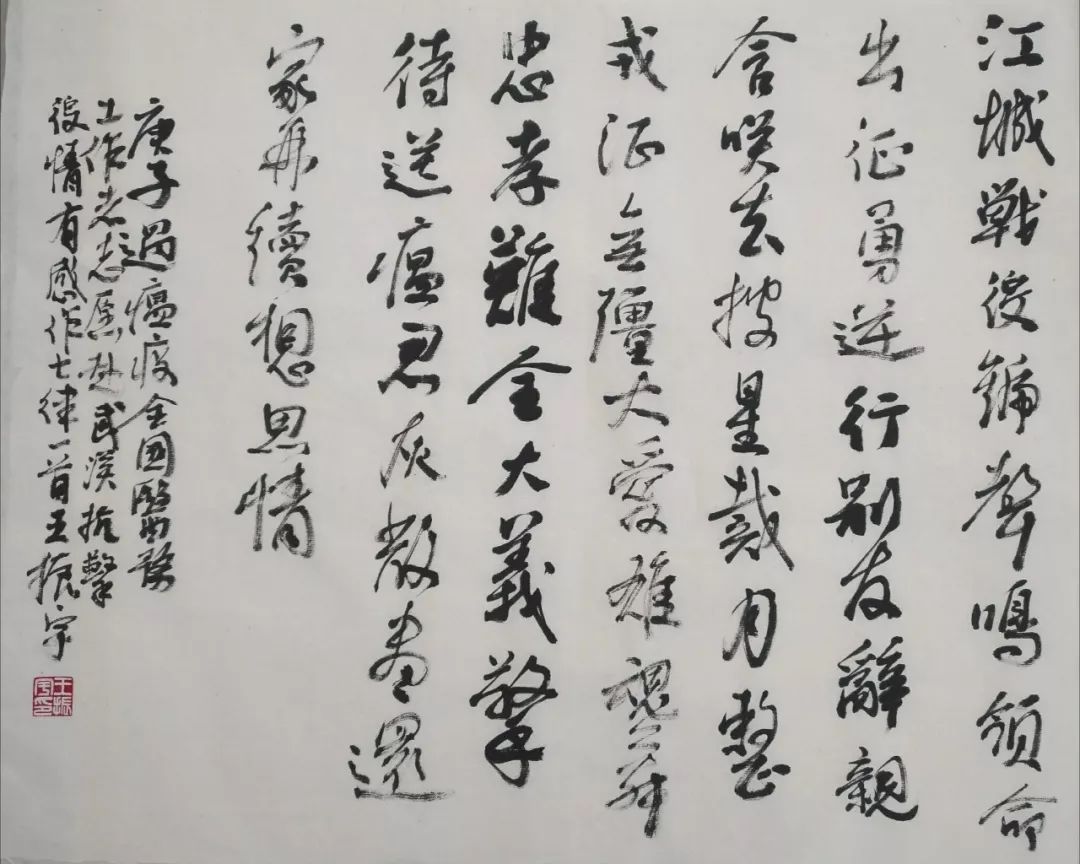 江城戰役號聲鳴領命
出征勇逆行别友辭親
含咲去披星戴月整
戎征無疆大愛雄魂舞
忠孝難全大義擎
待送瘟君灰散盡還
家再續想思情
庚子遇瘟疫全国醫務
工作者志愿赴武漢抗擊
疫情有感作七律一首王振宇
王振宇印